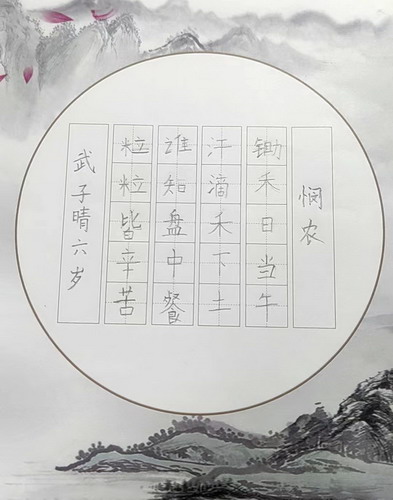 悯农
锄禾日当午
汗滴禾下土
谁知盘中餐
粒粒皆辛苦
武子晴六岁